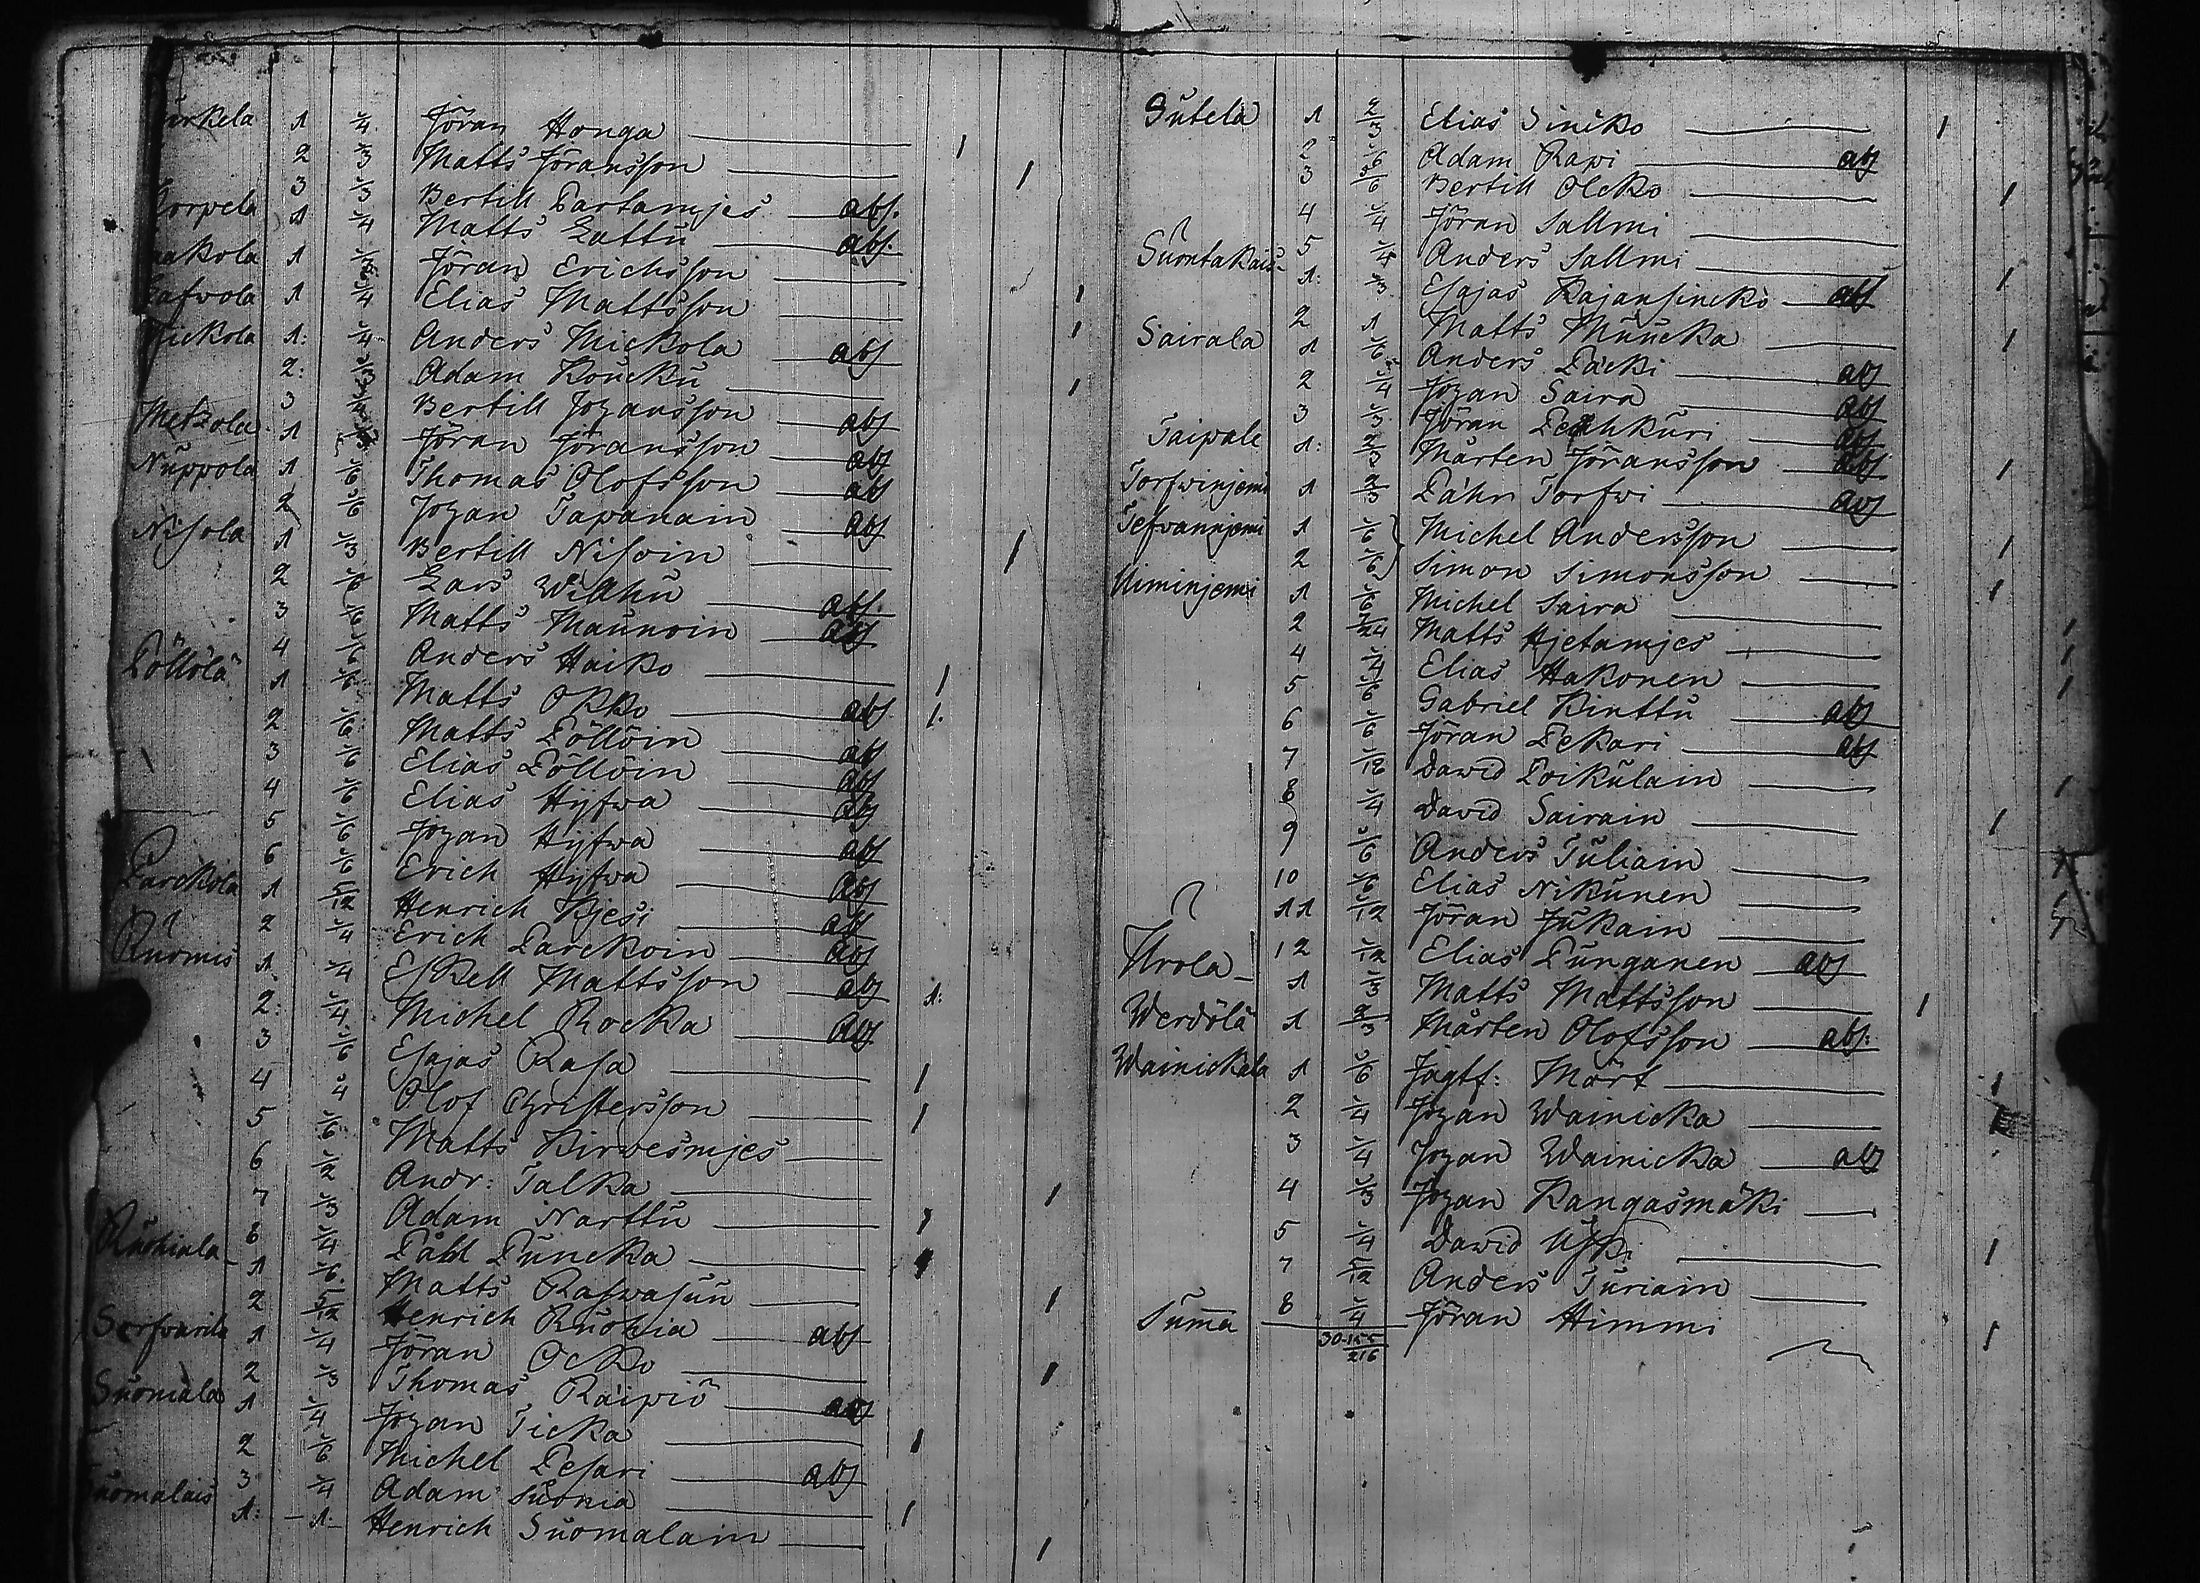 1 1/4 Jöran Honga 1
2 1/3 Matts Jöransson 1
3 1/3 Bertill Partamjes abs.
1 1/4 Matts Lattu abs.
1 Jöran Erichsson
1 1/4 Elias Mattsson 1
1: 1/4 Anders Mickola abs 1
2: Adam Koucku
3 Bertill Johansson abs 1
Metzola 1 Jöran Jöransson abs
Nuppola 1 1/6 Thomas Olofsson abs
2 1/6 Johan Tapanain abs
Nisola 1 1/3 Bertill Nisoin 1
2 1/6 Lars Wilahu abs.
3 1/6 Matts Maunoin abs
4 1/6 Anders Haiko 1
Pöllölä 1 1/6 Matts Okko abs 1.
2 1/6 Matts Pöllöin abs
3 1/6 Elias Pöllöin abs
4 1/6 Elias Hyfwa abs
5 1/6 Johan Hyfwa abs
6 1/6 Erich Hyfwa abs
Parckola 1 5/12 Henrich Kjesi abs
2 1/4 Erich Parckoin abs
Rurmis 1 1/4 Eskell Mattsson abs 1:
2: 1/4 Michel Rocka abs
3 1/6 Esajas Rasa 1
4 1/4 Olof Christersson 1
5 1/6 Matts Kirwesmjes
6 1/2 Andr: Talka 1
7 1/3 Adam Narttu 1
8 1/4 Påhl Puncka 1
Ruohiala 1 1/6 Matts Raswasuu 1
2 5/12 Henrich Ruohia abs
1 1/4 Jöran Ocko 1
2 1/3 Thomas Räipiö abs
Suoniala 1 1/4 Johan Ticka 1
2 1/6 Michel Pesari abs
3 1/4 Adam Suonia 1
Suomalais 1: 1 Henrich Suomalain 1
Sutela 1 2/3 Elias Sineko 1
2 1/6 Adam Rapi abs
3 5/6 Bertill Olcko 1
4 1/4 Jöran Sallmi
5 1/4 Anders Sallmi 1
Suontakais 1: 1/3 Esajas Kajansincko abs
2 1 Matts Muucka 1
Sairala 1 1/6 Anders Päcki abs
2 1/4 Johan Saira abs
3 1/3 Jöran Pehkuri abs
Taipale 1: 2/3 Mårten Jöransson abs 1
Torfwinjemi 1 2/3 Påhr Torfwi abs
Tefwannjemi 1 1/6 Michel Andersson 1
2 1/6 Simon Simonsson 1
Niminjemi 1 1/6 Michel Saira 1
2 Matts Hjetamjes 1
4 1/4 Elias Hakonen 1
5 1/6 Gabriel Kinttu abs
6 1/6 Jöran Pekari abs
7 1/12 David Poikulain 1
8 1/4 David Sairain 1
9 1/6 Anders Tuliain
10 1/6 Elias Nikunen
11 1/12 Jöran Jukain
12 1/12 Elias Punganen abs
Urola 1 1/3 Matts Mattsson 1
Werdölä 1 2/3 Mårten Olofsson abs:
Wainickala 1 1/6 Jagtf: Mört 1
2 1/4 Johan Wainicka
3 1/4 Johan Wainicka abs
4 1/3 Johan Kangasmäki
5 1/4 David Uski 1
7 5/12 Anders Turiain
8 1/4 Jöran Himmi 1
Suma 30 155/216